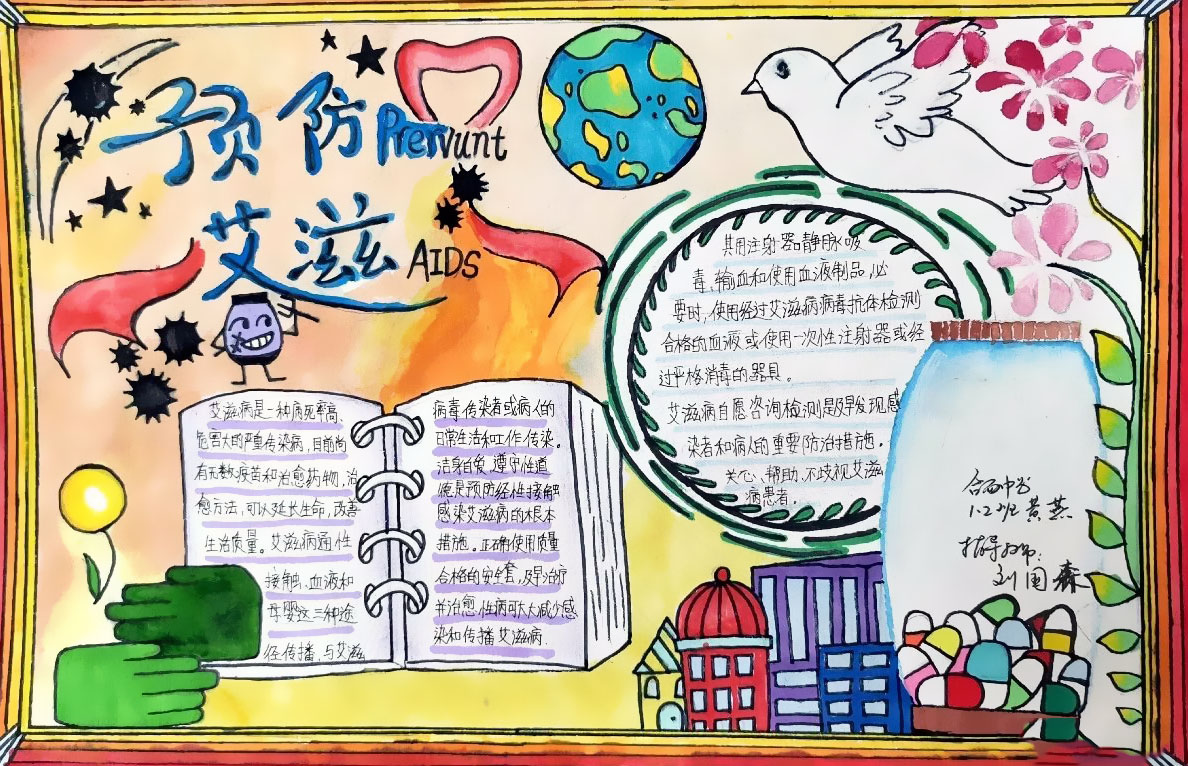 预防
Prervunt
艾滋
AIDS
艾滋病是一种病死率高、
危害大的严重传染病,目前尚
有无数疫苗和治愈药物,治
愈方法,可以延长生命,改善
生活质量。艾滋病通性
接触、血液和
母婴这三种途
径传播,与艾滋
病毒传染者或病人的
日常生活和工作传染。
洁身自爱、遵守性道
德是预防经性接触
感染艾滋病的根本
措施。正确使用质量
合格的安全套,及早治疗
并治愈性病可大大减少感
染和传播艾滋病.
共用注射器静脉吸
毒,输血和使用血液制品,必
要时,使用经过艾滋病病毒抗体检测
合格的血液或使用一次性注射器或经
过严格消毒的器具。
艾滋病自愿咨询检测是及早发现感
染者和病人的重要防治措施。
关心、帮助、不歧视艾滋
病患者。
1·2班 黄燕
指导老师:
刘国森